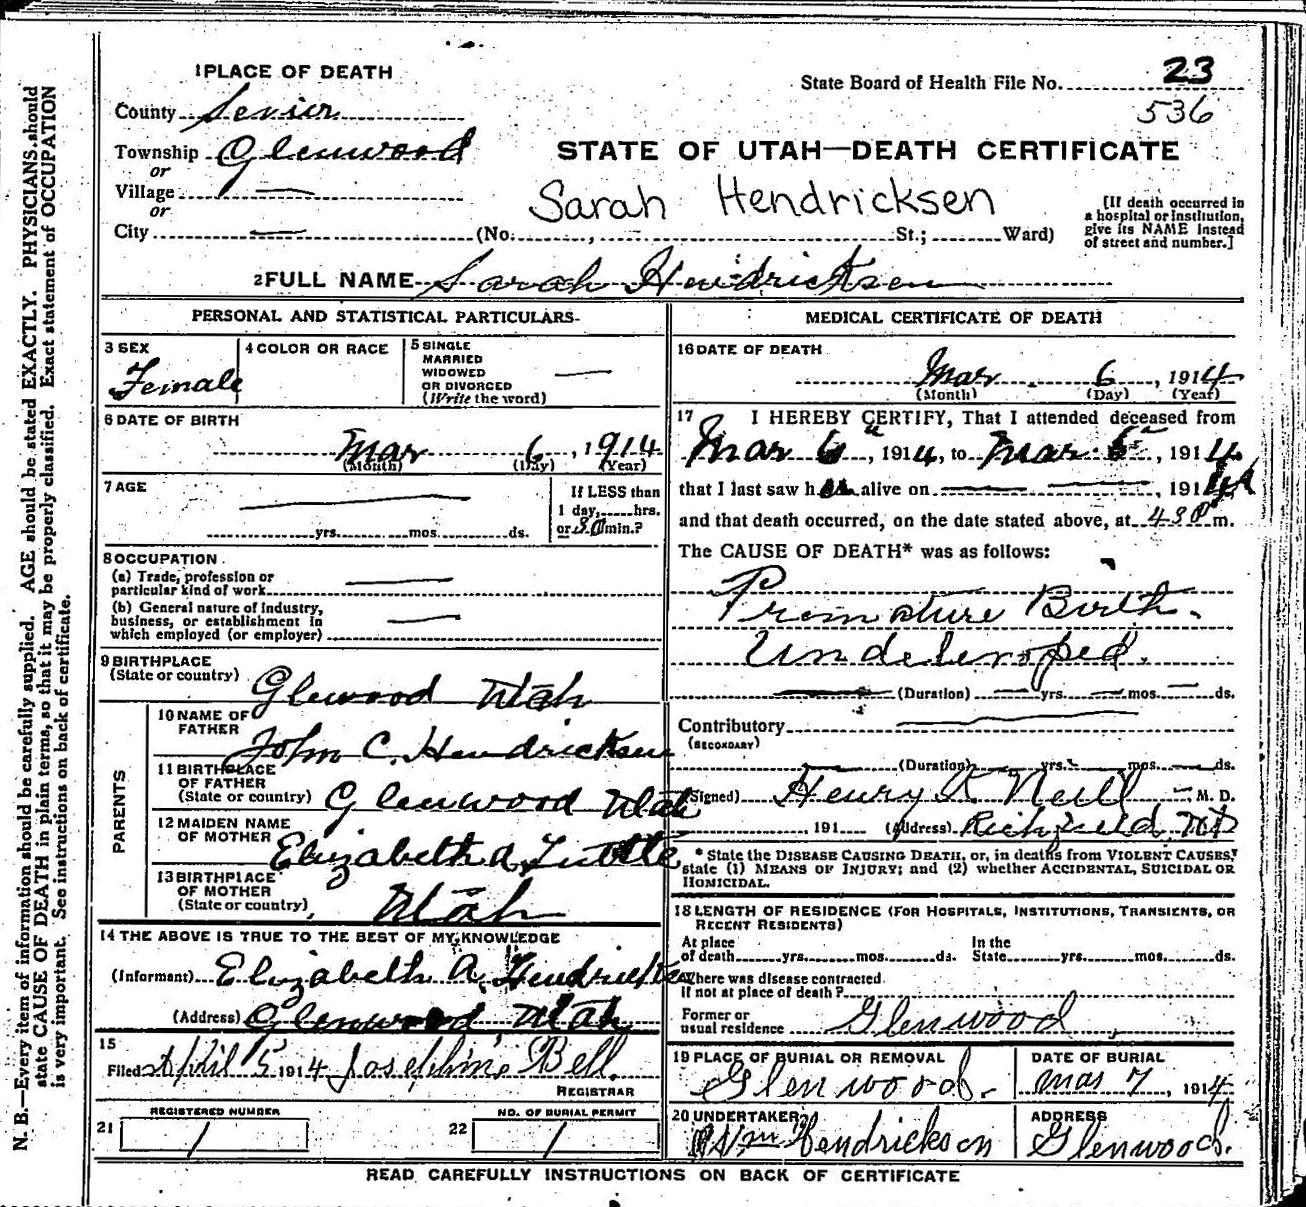 1 PLACE OF DEATH
State Board of Health File No. 23
536
County Sevier
Township Glenwood
or
Village —
or
City —
STATE OF UTAH—DEATH CERTIFICATE
Sarah Hendricksen
(No. , St.; Ward)
[If death occurred in
a hospital or institution,
give its NAME instead
of street and number.]
2 FULL NAME Sarah Hendricksen
PERSONAL AND STATISTICAL PARTICULARS
3 SEX
Female
4 COLOR OR RACE
5 SINGLE
MARRIED
WIDOWED
OR DIVORCED
(Write the word)
—
6 DATE OF BIRTH
Mar 6, 1914
(Month) (Day) (Year)
7 AGE
yrs. mos. ds.
If LESS than
1 day, hrs.
or 30 min.?
8 OCCUPATION
(a) Trade, profession or
particular kind of work —
(b) General nature of industry,
business, or establishment in
which employed (or employer) —
9 BIRTHPLACE
(State or country)
Glenwood Utah
PARENTS
10 NAME OF
FATHER
John C. Hendricksen
11 BIRTHPLACE
OF FATHER
(State or country) Glenwood Utah
12 MAIDEN NAME
OF MOTHER
Elizabeth A Tuttle
13 BIRTHPLACE
OF MOTHER
(State or country)
Utah
14 THE ABOVE IS TRUE TO THE BEST OF MY KNOWLEDGE
(Informant) Elizabeth A. Hendricksen
(Address) Glenwood, Utah
15
Filed April 5 1914 Josephine Bell
REGISTRAR
21
REGISTERED NUMBER
1
22
NO. OF BURIAL PERMIT
1
MEDICAL CERTIFICATE OF DEATH
16 DATE OF DEATH
Mar 6, 1914
(Month) (Day) (Year)
17 I HEREBY CERTIFY, That I attended deceased from
Mar 6, 1914, to Mar 6, 1914
that I last saw her alive on — —, 1914
and that death occurred, on the date stated above, at 430 P m.
The CAUSE OF DEATH* was as follows:
Premature Birth.
Undeveloped.
(Duration) — yrs. — mos. — ds.
Contributory —
(SECONDARY)
(Duration) yrs. mos. ds.
(Signed) Henry K Neill, M. D.
, 191 (Address) Richfield Ut
* State the DISEASE CAUSING DEATH, or, in deaths from VIOLENT CAUSES,
state (1) MEANS OF INJURY; and (2) whether ACCIDENTAL, SUICIDAL OR
HOMICIDAL.
18 LENGTH OF RESIDENCE (FOR HOSPITALS, INSTITUTIONS, TRANSIENTS, OR
RECENT RESIDENTS)
At place
of death yrs. mos. ds.
In the
State yrs. mos. ds.
Where was disease contracted
if not at place of death?
Former or
usual residence Glenwood
19 PLACE OF BURIAL OR REMOVAL
Glenwood.
DATE OF BURIAL
Mar 7, 1914
20 UNDERTAKER
Wm Hendrickson
ADDRESS
Glenwood.
READ CAREFULLY INSTRUCTIONS ON BACK OF CERTIFICATE
N. B.—Every item of information should be carefully supplied. AGE should be stated EXACTLY. PHYSICIANS should
state CAUSE OF DEATH in plain terms, so that it may be properly classified. Exact statement of OCCUPATION
is very important. See instructions on back of certificate.